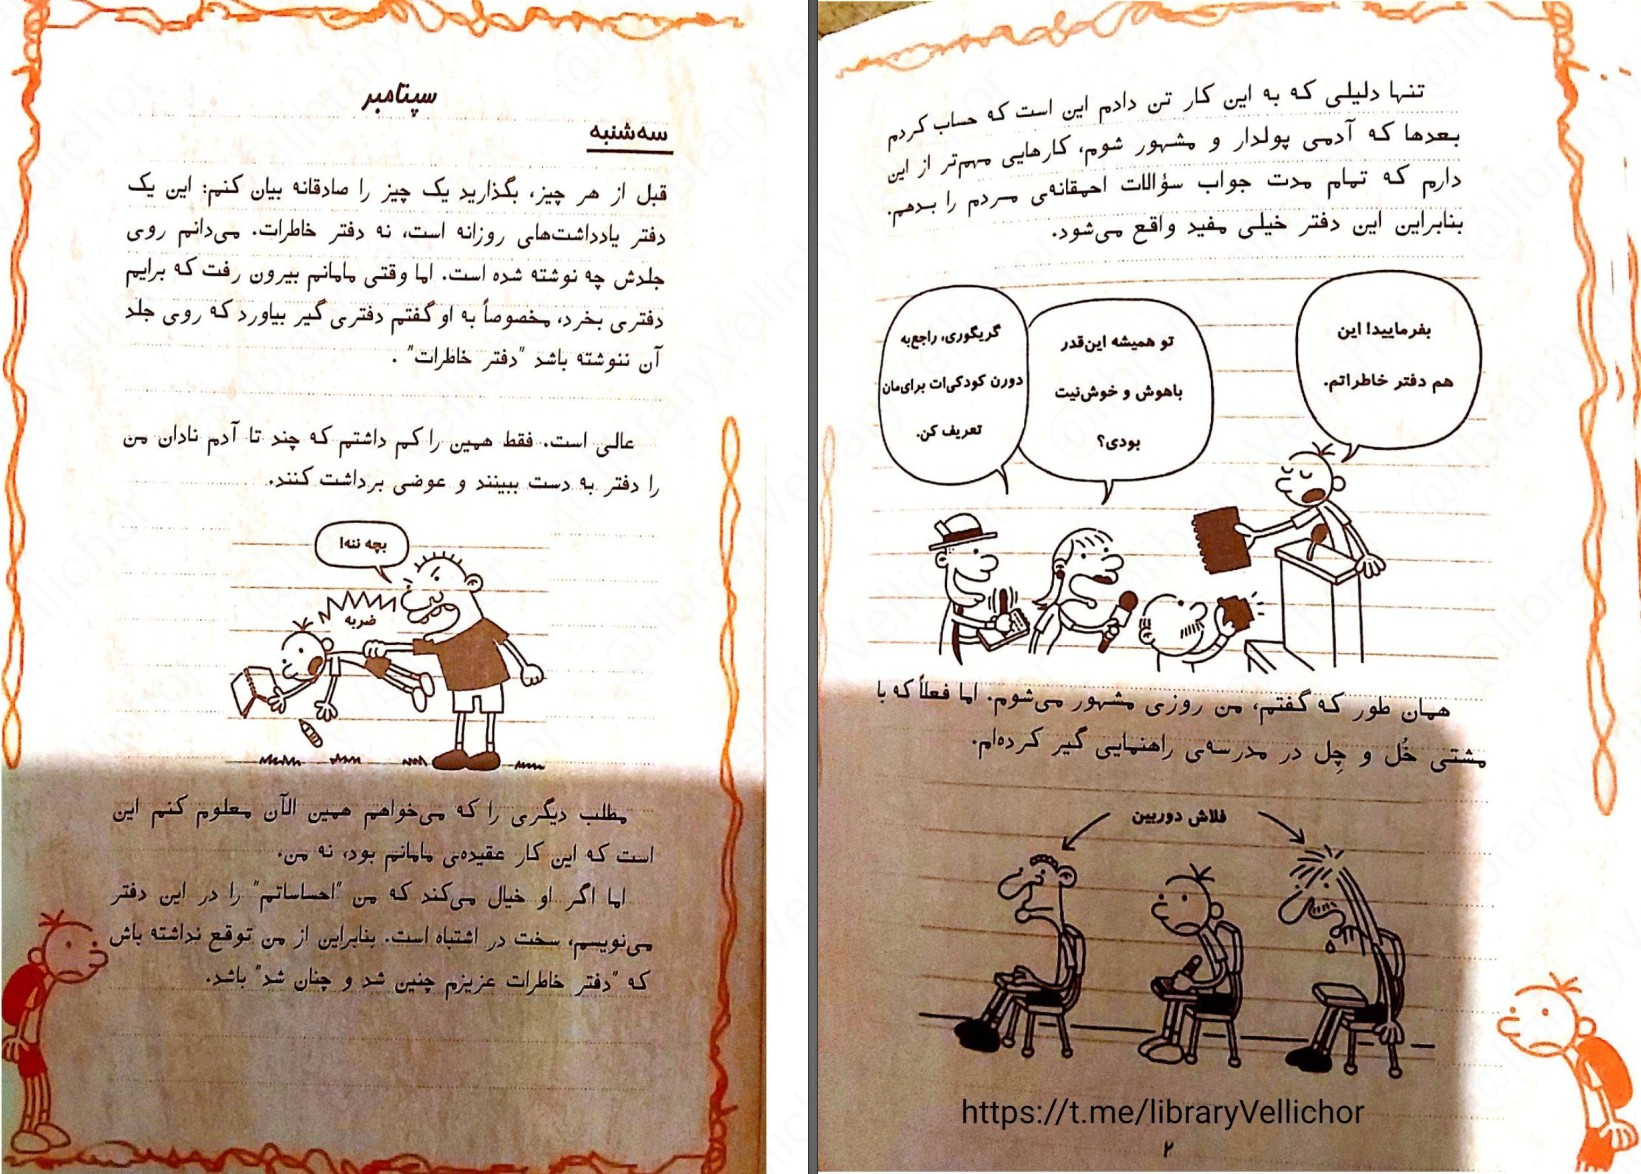 سپتامبر
سه‌شنبه
قبل از هر چیز، بگذارید یک چیز را صادقانه بیان کنم: این یک
دفتر یادداشت‌های روزانه است، نه دفتر خاطرات. می‌دانم روی
جلدش چه نوشته شده است. اما وقتی مامانم بیرون رفت که برایم
دفتری بخرد، مخصوصاً به او گفتم دفتری گیر بیاورد که روی جلد
آن ننوشته باشد "دفتر خاطرات" .
عالی است. فقط همین را کم داشتم که چند تا آدم نادان من
را دفتر به دست ببینند و عوضی برداشت کنند.
بچه ننه!
ضربه
مطلب دیگری را که می‌خواهم همین الآن معلوم کنم این
است که این کار عقیده‌ی مامانم بود، نه من.
اما اگر او خیال می‌کند که من "احساساتم" را در این دفتر
می‌نویسم، سخت در اشتباه است. بنابراین از من توقع نداشته باش
که "دفتر خاطرات عزیزم چنین شد و چنان شد" باشد.
تنها دلیلی که به این کار تن دادم این است که حساب کردم
بعدها که آدمی پولدار و مشهور شوم، کارهایی مهم‌تر از این
دارم که تمام مدت جواب سؤالات احمقانه‌ی مردم را بدهم.
بنابراین این دفتر خیلی مفید واقع می‌شود.
بفرمایید! این
هم دفتر خاطراتم.
تو همیشه این‌قدر
باهوش و خوش‌نیت
بودی؟
گریگوری، راجع‌به
دورن کودکی‌ات برای‌مان
تعریف کن.
همان طور که گفتم، من روزی مشهور می‌شوم. اما فعلاً که با
مشتی خُل و چِل در مدرسه‌ی راهنمایی گیر کرده‌ام.
فلاش دوربین
https://t.me/libraryVellichor
۲